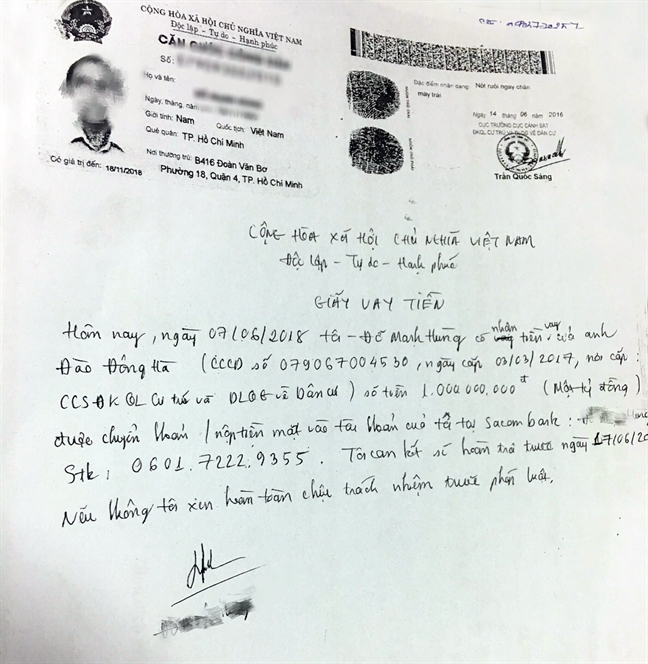 CỘNG HÒA XÃ HỘI CHỦ NGHĨA VIỆT NAM
Độc lập - Tự do - Hạnh phúc
CĂN
Số:
Họ và tên:
Ngày, tháng, năm
Giới tính: Nam Quốc tịch: Việt Nam
Quê quán: TP. Hồ Chí Minh
Nơi thường trú: B416 Đoàn Văn Bơ
Phường 18, Quận 4, TP. Hồ Chí Minh
Có giá trị đến: 18/11/2018
Đặc điểm nhân dạng: Nốt ruồi ngay chân
mày trái
Ngày 14 tháng 06 năm 2016
CỤC TRƯỞNG CỤC CẢNH SÁT
ĐKQL CƯ TRÚ VÀ DLQG VỀ DÂN CƯ
Trần Quốc Sảng
CỘNG HÒA XÃ HỘI CHỦ NGHĨA VIỆT NAM
Độc lập - Tự do - Hạnh phúc
GIẤY VAY TIỀN
Hôm nay, ngày 07/06/2018 tôi - Đỗ Mạnh Hùng có nhận tiền vay của anh
Đào Đông Hà (CCCD số 079067004530, ngày cấp 03/03/2017, nơi cấp:
CCSĐKQL Cư trú và DLQG về Dân cư) số tiền 1.000.000.000đ (Một tỷ đồng)
được chuyển khoản / nộp tiền mặt vào tài khoản của tôi tại Sacombank:
Stk: 0601.7222.9355. Tôi cam kết sẽ hoàn trả trước ngày 17/06/20
Nếu không tôi xin hoàn toàn chịu trách nhiệm trước pháp luật.